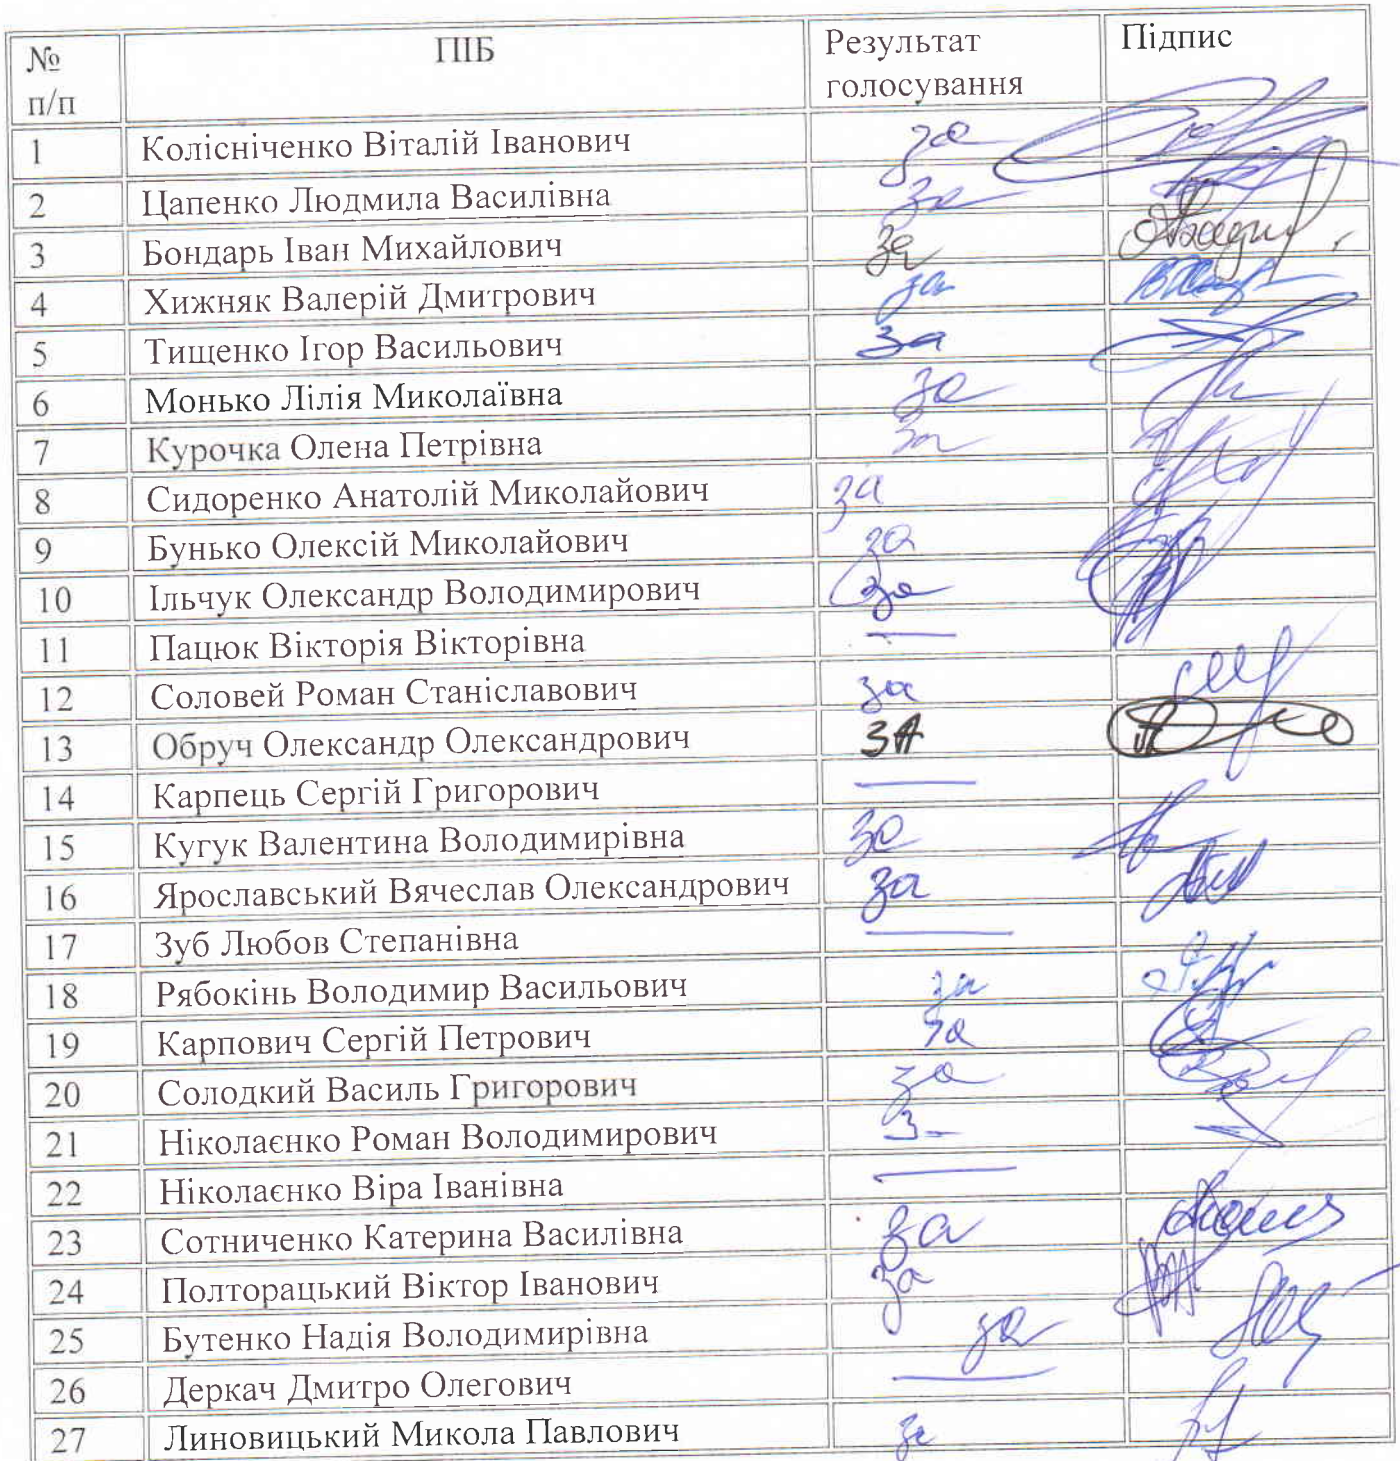 № п/п ПІБ Результат голосування Підпис
1 Колісніченко Віталій Іванович за
2 Цапенко Людмила Василівна за
3 Бондарь Іван Михайлович за
4 Хижняк Валерій Дмитрович за
5 Тищенко Ігор Васильович за
6 Монько Лілія Миколаївна за
7 Курочка Олена Петрівна за
8 Сидоренко Анатолій Миколайович за
9 Бунько Олексій Миколайович за
10 Ільчук Олександр Володимирович за
11 Пацюк Вікторія Вікторівна —
12 Соловей Роман Станіславович за
13 Обруч Олександр Олександрович ЗА
14 Карпець Сергій Григорович —
15 Кугук Валентина Володимирівна за
16 Ярославський Вячеслав Олександрович за
17 Зуб Любов Степанівна —
18 Рябокінь Володимир Васильович за
19 Карпович Сергій Петрович за
20 Солодкий Василь Григорович за
21 Ніколаєнко Роман Володимирович
22 Ніколаєнко Віра Іванівна —
23 Сотниченко Катерина Василівна за
24 Полторацький Віктор Іванович за
25 Бутенко Надія Володимирівна за
26 Деркач Дмитро Олегович —
27 Линовицький Микола Павлович за